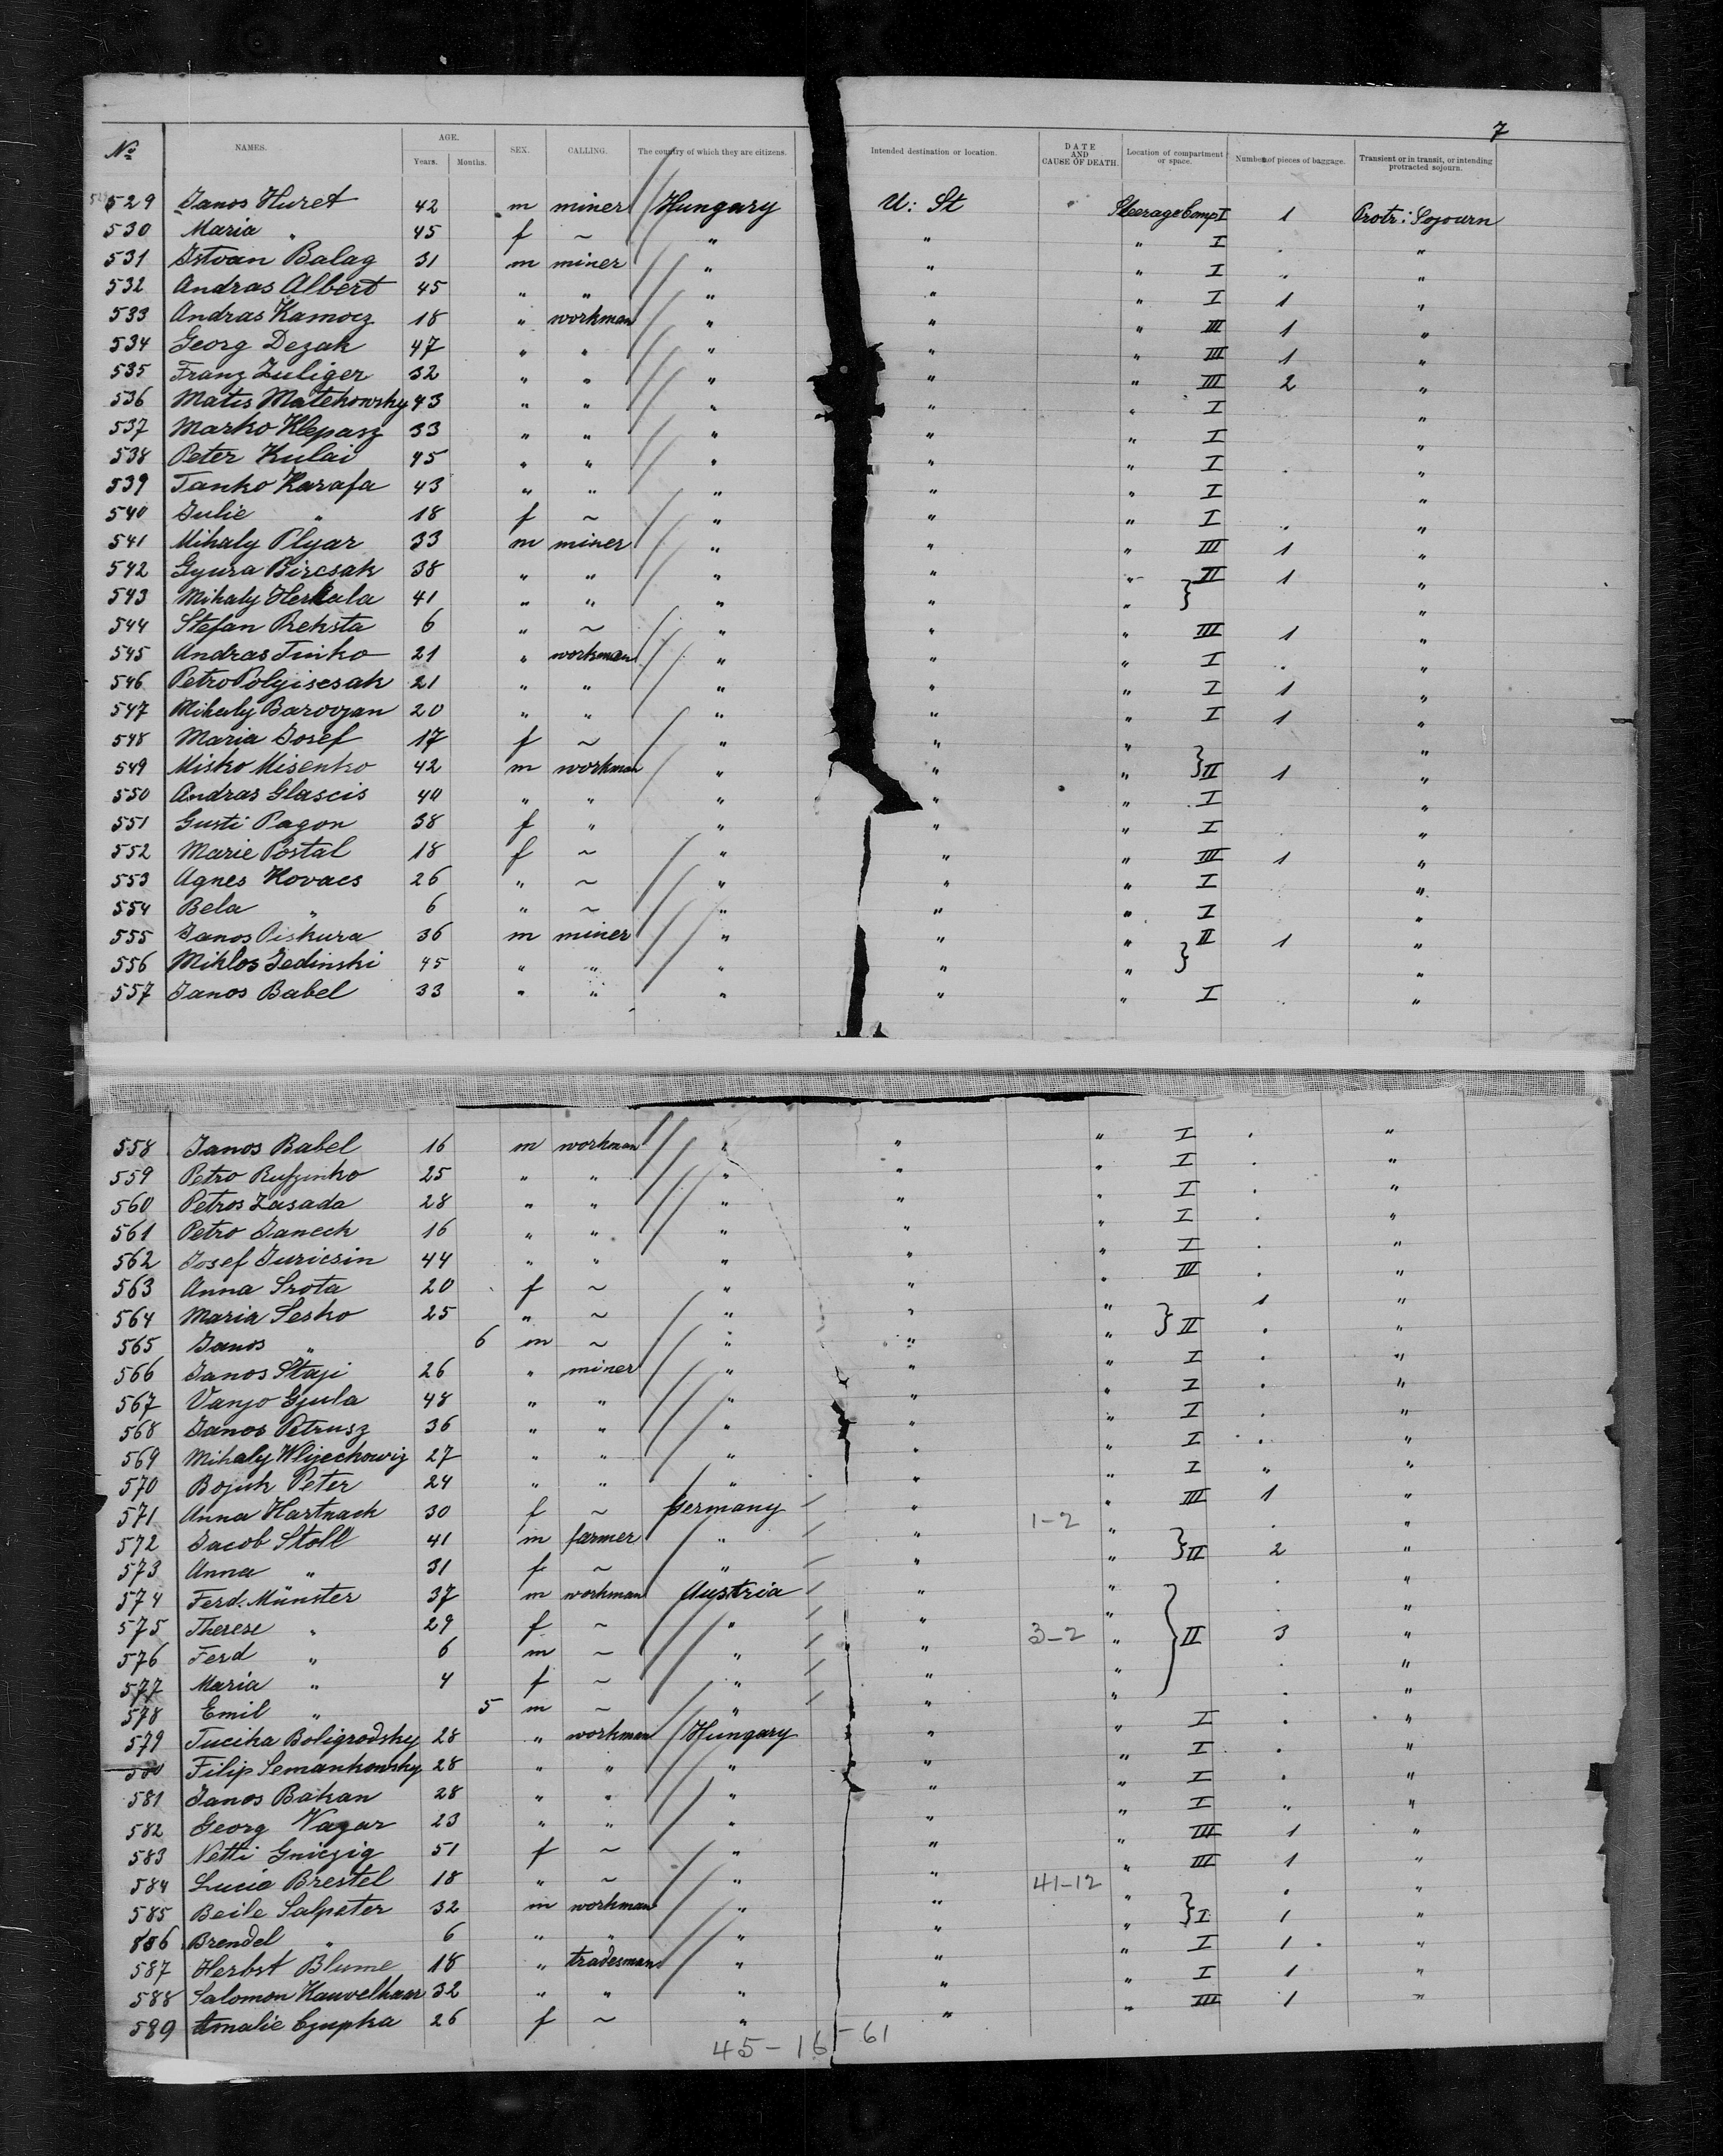 7
No. NAMES. AGE. Years. Months. SEX. CALLING. The country of which they are citizens. Intended destination or location. DATE AND CAUSE OF DEATH. Location of compartment or space. Number of pieces of baggage. Transient or in transit, or intending protracted sojourn.
529 Janos Huret 42 m miner Hungary U: St Steerage Comp I 1 Protr: Sojourn
530 Maria " 45 f ~ " " " I . "
531 Istvan Balag 31 m miner " " " I . "
532 Andras Albert 45 " " " " " I 1 "
533 Andras Kamocz 18 " workman " " " III 1 "
534 Georg Dezak 47 " " " " " III 1 "
535 Franz Zuliger 32 " " " " " III 2 "
536 Matis Matehowsky 43 " " " " " I "
537 Marko Klepasz 33 " " " " " I "
538 Peter Kulai 45 " " " " " I . "
539 Janko Karafa 43 " " " " " I "
540 Julie " 18 f ~ " " " I . "
541 Mihaly Plyar 33 m miner " " " III 1 "
542 Gyura Bircsak 38 " " " " " II 1 "
543 Mihaly Herkala 41 " " " " " "
544 Stefan Preksta 6 " ~ " " " III 1 "
545 Andras Tinko 21 " workman " " " I . "
546 Petro Polyiscsak 21 " " " " " I 1 "
547 Mihaly Barovzan 20 " " " " " I 1 "
548 Maria Josef 17 f ~ " " " "
549 Misko Misenko 42 m workman " " " II 1 "
550 Andras Glascis 40 " " " " " I "
551 Gusti Pagon 38 f " " " " I . "
552 Marie Postal 18 f ~ " " " III 1 "
553 Agnes Kovacs 26 " ~ " " " I "
554 Bela " 6 " ~ " " " I "
555 Janos Piskura 36 m miner " " " II 1 "
556 Miklos Jedinski 45 " " " " " "
557 Janos Babel 33 " " " " " I . "
558 Janos Babel 16 m workman " " " I . "
559 Petro Rufzinko 25 " " " " " I . "
560 Petros Zasada 28 " " " " " I . "
561 Petro Janech 16 " " " " " I . "
562 Josef Juricsin 44 " " " " " I . "
563 Anna Srota 20 f ~ " " " III . "
564 Maria Sesko 25 " ~ " " " 1 "
565 Janos " 6 m ~ " " " II . "
566 Janos Staji 26 " miner " " " I . "
567 Vanjo Gjula 48 " " " " " I . "
568 Janos Petrusz 36 " " " " " I . "
569 Mihaly Wlijechowiz 27 " " " " " I . "
570 Bojuk Peter 24 " " " " " I " "
571 Anna Hartnack 30 f ~ Germany " " III 1 "
572 Jacob Stoll 41 m farmer " " 1-2 " . "
573 Anna " 31 f ~ " " " II 2 "
574 Ferd. Münster 37 m workman Austria " " . "
575 Therese " 29 f ~ " " " . "
576 Ferd " 6 m ~ " " 3-2 " II 3 "
577 Maria " 4 f ~ " " " . "
578 Emil " 5 m ~ " " " . "
579 Tucika Boligrodsky 28 " workman Hungary " " I . "
580 Filip Semankowsky 28 " " " " " I . "
581 Janos Bakan 28 " " " " " I . "
582 Georg Vazar 23 " " " " " I " "
583 Netti Gniczig 51 f ~ " " " III 1 "
584 Lucia Brestel 18 " ~ " " 41-12 " III 1 "
585 Beile Salpeter 32 m workman " " " . "
586 Brendel " 6 " " " " " I 1 "
587 Herbst Blume 18 " tradesman " " " I 1 . "
588 Salomon Kauvelhaar 32 " " " " " I 1 "
589 Amalie Czupka 26 f ~ " " " III 1 "
45-16-61